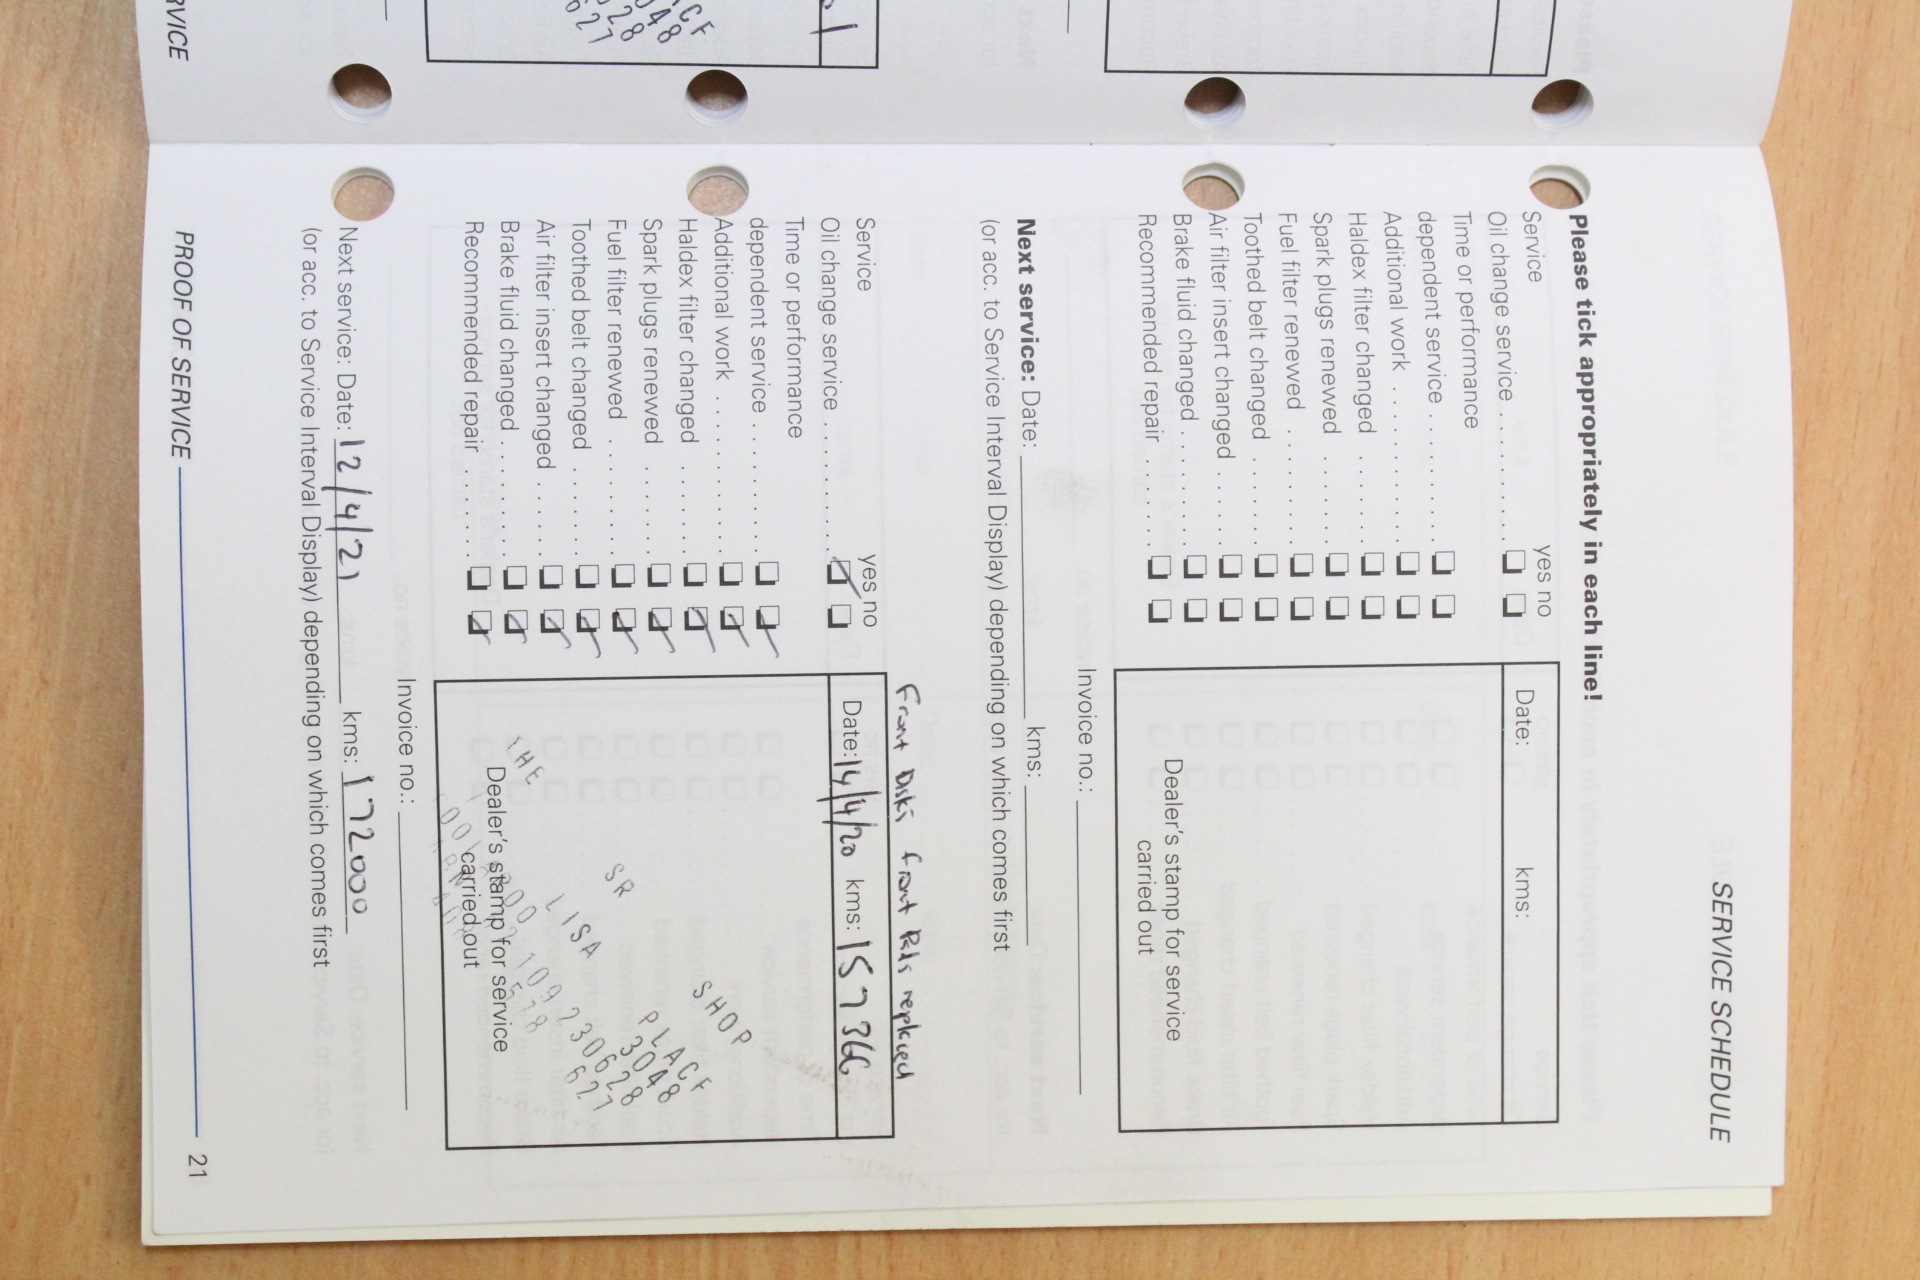 SERVICE SCHEDULE
Please tick appropriately in each line!
Service yes no
Oil change service
Time or performance
dependent service
Additional work
Haldex filter changed
Spark plugs renewed
Fuel filter renewed
Toothed belt changed
Air filter insert changed
Brake fluid changed
Recommended repair
Date: kms:
Dealer's stamp for service
carried out
Invoice no.:
Next service: Date: kms:
(or acc. to Service Interval Display) depending on which comes first
Front Disks front Pads replaced
Service yes no
Oil change service
Time or performance
dependent service
Additional work
Haldex filter changed
Spark plugs renewed
Fuel filter renewed
Toothed belt changed
Air filter insert changed
Brake fluid changed
Recommended repair
Date: 14/4/20 kms: 157366
THE SR LISA SHOP
PLACE
3048
109 230628
578 627
Dealer's stamp for service
carried out
Invoice no.:
Next service: Date: 12/4/21 kms: 172000
(or acc. to Service Interval Display) depending on which comes first
PROOF OF SERVICE 21